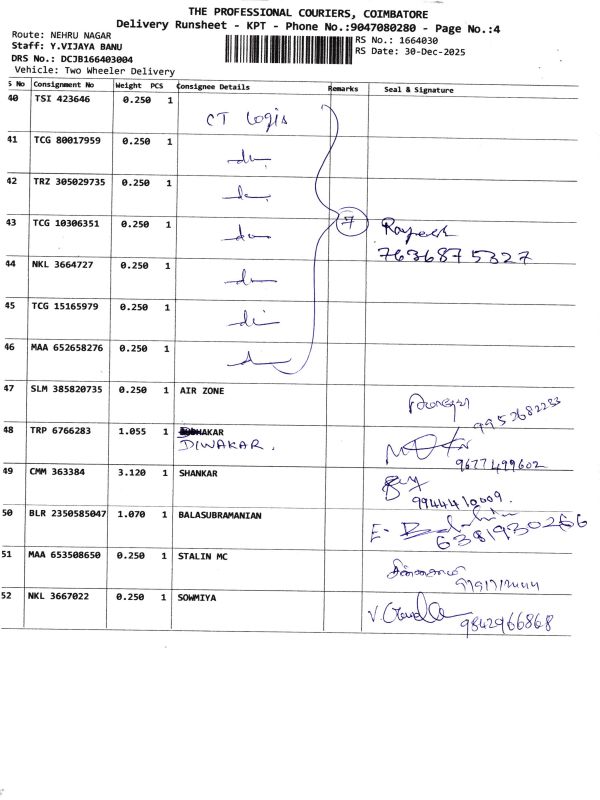 THE PROFESSIONAL COURIERS, COIMBATORE
Delivery Runsheet - KPT - Phone No.:9047080280 - Page No.:4
Route: NEHRU NAGAR
RS No.: 1664030
Staff: Y.VIJAYA BANU
RS Date: 30-Dec-2025
DRS No.: DCJB166403004
Vehicle: Two Wheeler Delivery
S No Consignment No Weight PCS Consignee Details Remarks Seal & Signature
40 TSI 423646 0.250 1 CT Logis
41 TCG 80017959 0.250 1
42 TRZ 305029735 0.250 1
43 TCG 10306351 0.250 1 7
7636875327
44 NKL 3664727 0.250 1
45 TCG 15165979 0.250 1
46 MAA 652658276 0.250 1
47 SLM 385820735 0.250 1 AIR ZONE
48 TRP 6766283 1.055 1 HAKAR
DIWAKAR.
9677499602
49 CMM 363384 3.120 1 SHANKAR
9944410009.
50 BLR 2350585047 1.070 1 BALASUBRAMANIAN
6381930266
51 MAA 653508650 0.250 1 STALIN MC
52 NKL 3667022 0.250 1 SOWMIYA
9842966868